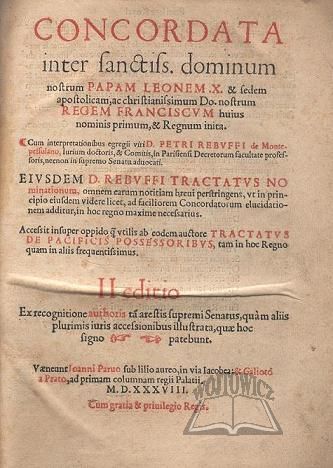 CONCORDATA
inter sanctiss. dominum
nostrum PAPAM LEONEM.X. & sedem
apostolicam, ac christianissimum Do. nostrum
REGEM FRANCISCVM huius
nominis primum, & Regnum inita.
Cum interpretationibus egregii viri D. PETRI REBVFFI de Monte-
pessulano, Iurium doctoris, & Comitis, in Parisiensi Decretorum facultate profes-
soris, necnon in supremo Senatu aduocati.
EIVSDEM D. REBVFFI TRACTATVS NO
minationum, omnem earum notitiam breui perstringens, vt in prin-
cipio eiusdem videre licet, ad faciliorem Concordatorum elucidatio-
nem additur, in hoc regno maxime necessarius.
Accessit insuper oppido q̃ vtilis ab eodem auctore TRACTATVS
DE PACIFICIS POSSESSORIBVS, tam in hoc Regno
quam in aliis frequentissimus.
II editio
Ex recognitione authoris tã arestis supremi Senatus, quàm aliis
plurimis iuris accessionibus illustrata, quæ hoc
signo ☞ ☜ patebunt.
Væneunt Ioanni Paruo sub lilio aureo, in via Iacobea: & Galioto
à Prato, ad primam columnam regii Palatii.
M.D.XXXVIII.
Cum gratia & priuilegio Regis.
WÓJTOWICZ